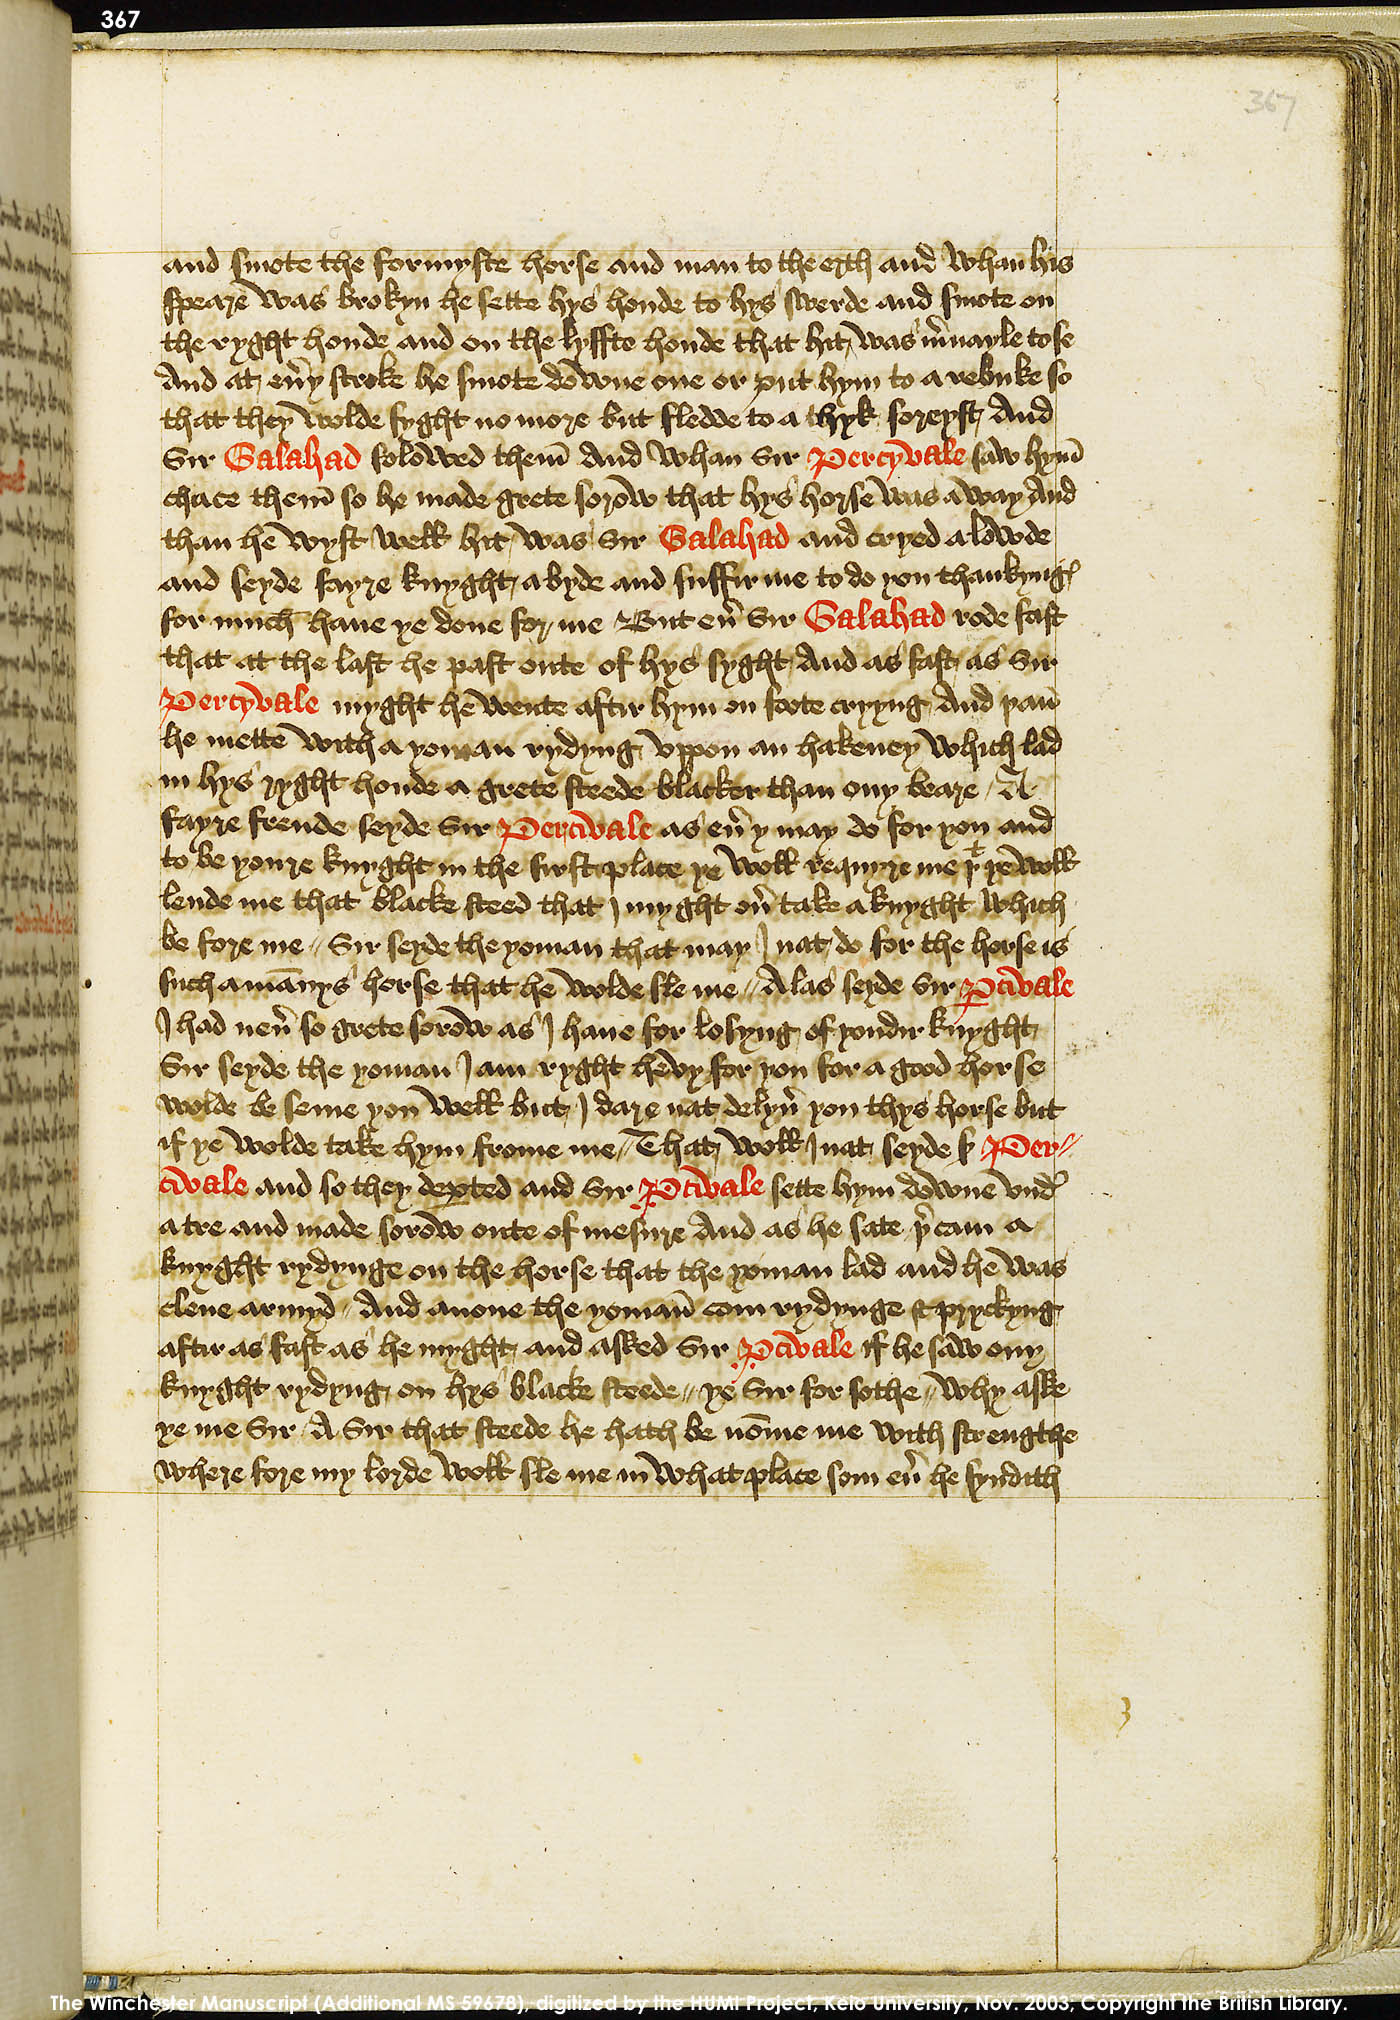 367
367
and smote the formyste horse and man to the erth and whan his
speare was brokyn he sette hys honde to hys swerde and smote on
the ryght honde and on the lyffte honde that hit was m̉vayle to se
And at eủy stroke he smote downe one or put hym to a rebuke so
that they wolde fyght no more but fledde to a thyk foreyst And
Sir Galahad folowed them̄ And whan Sir Percyvale saw hym̄
chace them̄ so he made grete sorow that hys horse was a way And
than he wyst well hit was Sir Galahad and cryed a lowde
and seyde fayre knyght a byde and suffir me to do you thankyng̉
for much haue ye done for me But eủ Sir Galahad rode fast
that at the last he past oute of hys syght And as fast as Sir
Percyvale myght he wente aftir hym on foote cryyng And þan̄
he mette with a yoman rydyng vppon an hakeney which lad
in hys ryght honde a grete steede blacker than ony beare A
fayre frende seyde Sir Percivale as eủ y may do for you and
to be youre knyght in the first place ye woll requyre me þt ye woll
lende me that blacke steed that I myght oủ take a knyght which
be fore me Sir seyde the yoman that may I nat do for the horse is
such a mānys horse that he wolde sle me Alas seyde Sir Pcivale
I had neủ so grete sorow as I haue for losyng of yondir knyght
Sir seyde the yoman I am ryght hevy for you for a good horse
wolde be seme you well but I dare nat delyủ you thys horse but
if ye wolde take hym frome me That woll I nat seyde ẜ Per//
civale and so they depted and Sir Pcivale sette hym downe vnd̉
a tre and made sorow oute of mesure And as he sate þ̉ cam a
knyght rydynge on the horse that the yoman lad and he was
clene armyd And anone the yoman̄ com rydynge & pryckyng
aftir as fast as he myght and asked Sir Pcivale if he saw ony
knyght rydyng on hys blacke steede // ye Sir for sothe // why aske
ye me Sir A Sir that steede he hath be nōme me with strengthe
where fore my lorde woll sle me in what place som eủ he fyndith
3
The Winchester Manuscript (Additional MS 59678), digitized by the HUMI Project, Keio University, Nov. 2003, Copyright the British Library.